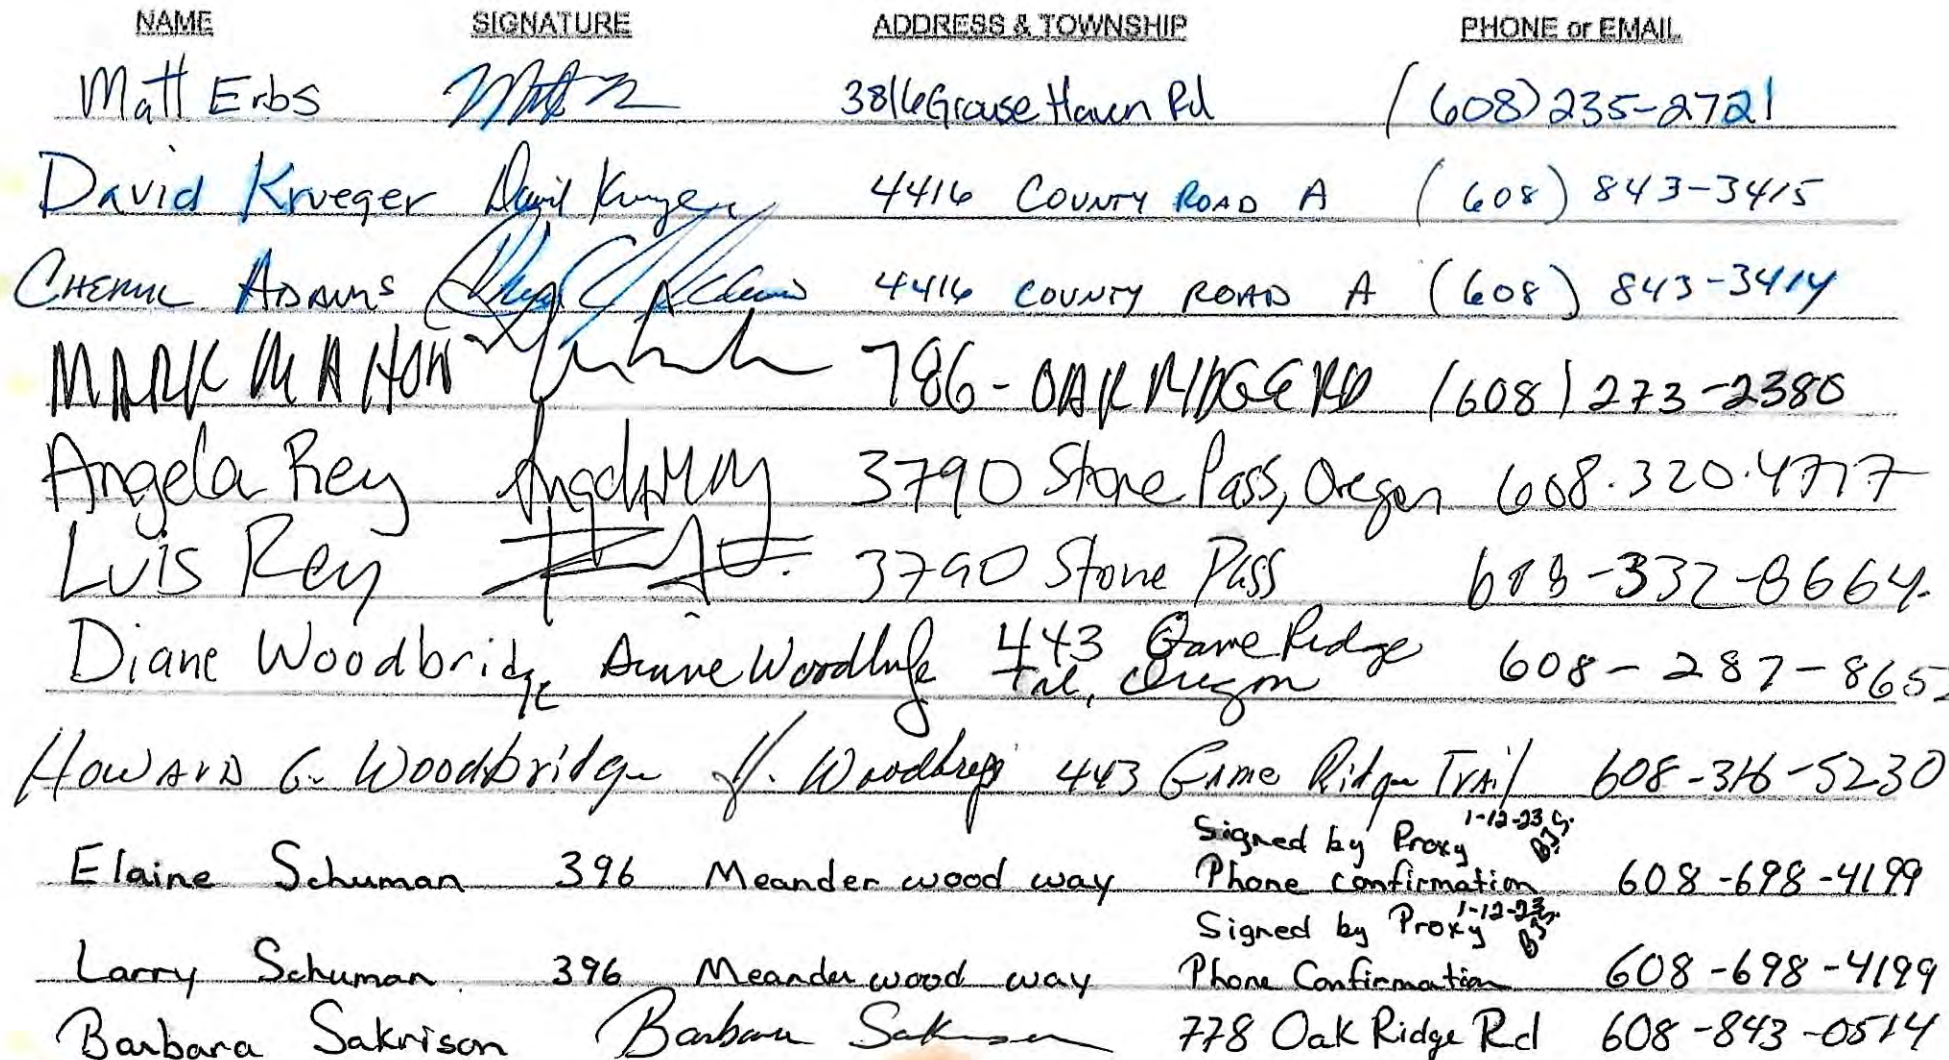 NAME SIGNATURE ADDRESS & TOWNSHIP PHONE or EMAIL
Matt Erbs 3816 Grouse Haven Rd (608) 235-2721
David Krueger David Krueger 4416 COUNTY ROAD A (608) 843-3415
CHERYL ADAMS 4416 COUNTY ROAD A (608) 843-3414
MARK MAHON 786-OAK RIDGE RD (608) 273-2380
Angela Rey 3790 Stone Pass, Oregon 608.320.4717
Luis Rey 3790 Stone Pass 608-332-8664.
Diane Woodbridge Diane Woodbridge 443 Game Ridge
Trl, Oregon 608-287-8652
HOWARD G. Woodbridge H. Woodbridge 443 Game Ridge Trail 608-316-5230
Signed by Proxy 1-12-23 BJS.
Elaine Schuman 396 Meander wood way Phone confirmation 608-698-4199
Signed by Proxy 1-12-23 BJS.
Larry Schuman 396 Meander wood way Phone Confirmation 608-698-4199
Barbara Sakrison Barbara Sakrison 778 Oak Ridge Rd 608-843-0514